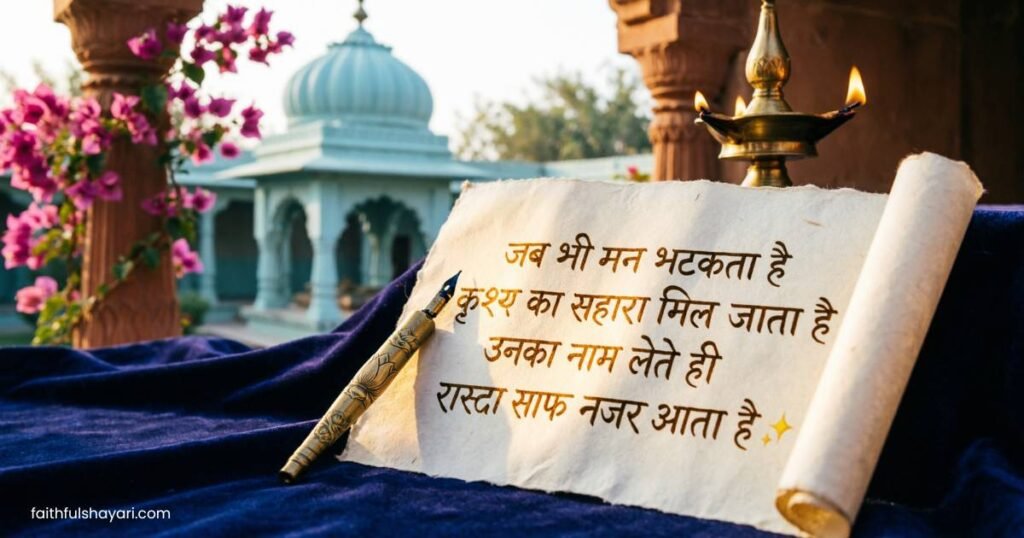 जब भी मन भटकता है
कृश्य का सहारा मिल जाता है
उनका नाम लेते ही
रास्दा साफ नजर आता है
faithfulshayari.com